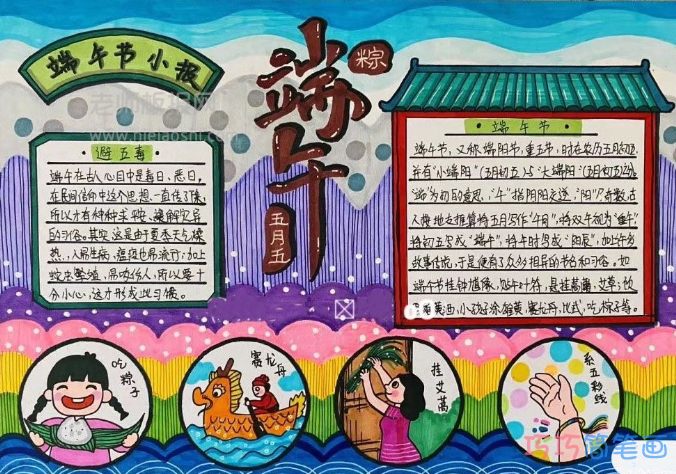 端午节小报
端午
粽
五月五
避五毒
端午在古人心目中是毒日、恶日,
在民间信仰中这个思想一直传了下来,
所以才有种种求平安、禳解灾异
的习俗。其实,这是由于夏季天气燥
热,人易生病,瘟疫也易流行;加上
蛇虫繁殖,易咬伤人,所以要十
分小心,这才形成此习惯。
端午节
端午节,又称端阳节,重五节,时在农历五月初五,
并有“小端阳”(五月初五)与“大端阳”
“端”为初的意思,“午”指阴阳交逆,
人按地支推算将五月写作“午月”,将双午视为“重午”
将初五写成“端午”,将午时写成“阳辰”,加上许多
故事传说,于是便有了众多相异的节日和习俗。如
端午节挂钟馗像,贴午叶符,悬挂菖蒲、艾草,
小孩子涂雄黄,赛龙舟,比武,吃粽子等。
吃粽子
赛龙舟
挂艾蒿
系五彩线
老师板报网
www.nielaoshi.cn
巧巧简笔画